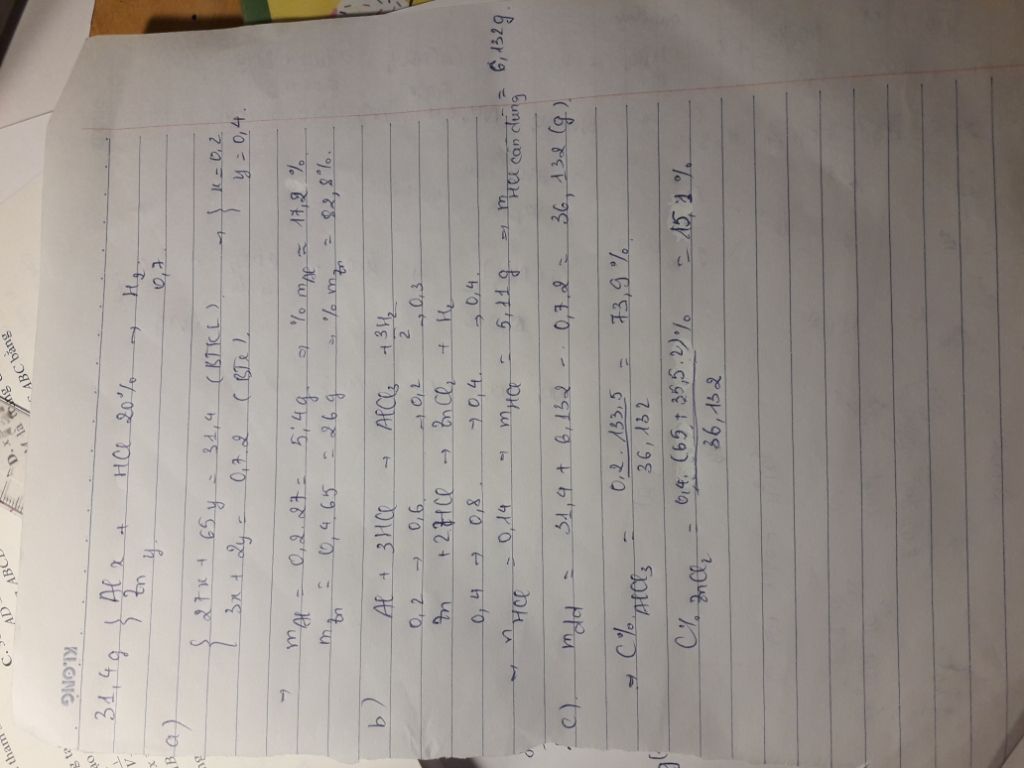 KLONG
31,4g { Al x + HCl 20% → H2
Zn y 0,7
a)
{ 27x + 65y = 31,4 (BTKL) → { x = 0,2
3x + 2y = 0,7.2 (BTe). y = 0,4.
→ mAl = 0,2.27 = 5,4g → % mAl = 17,2 %
mZn = 0,4.65 = 26g → % mZn = 82,8%.
b) Al + 3HCl → AlCl3 + 3/2 H2
0,2 → 0,6 → 0,2 → 0,3
Zn + 2HCl → ZnCl2 + H2
0,4 → 0,8 → 0,4. → 0,4.
→ nHCl = 0,14 → mHCl = 5,11 g → mHCl cần dùng = 6,132g.
c). mdd = 31,4 + 6,132 - 0,7.2 = 36,132 (g)
→ C% AlCl3 = 0,2.133,5 / 36,132 = 73,9%.
C% ZnCl2 = 0,4.(65+35,5.2)% / 36,132 = 15,1%